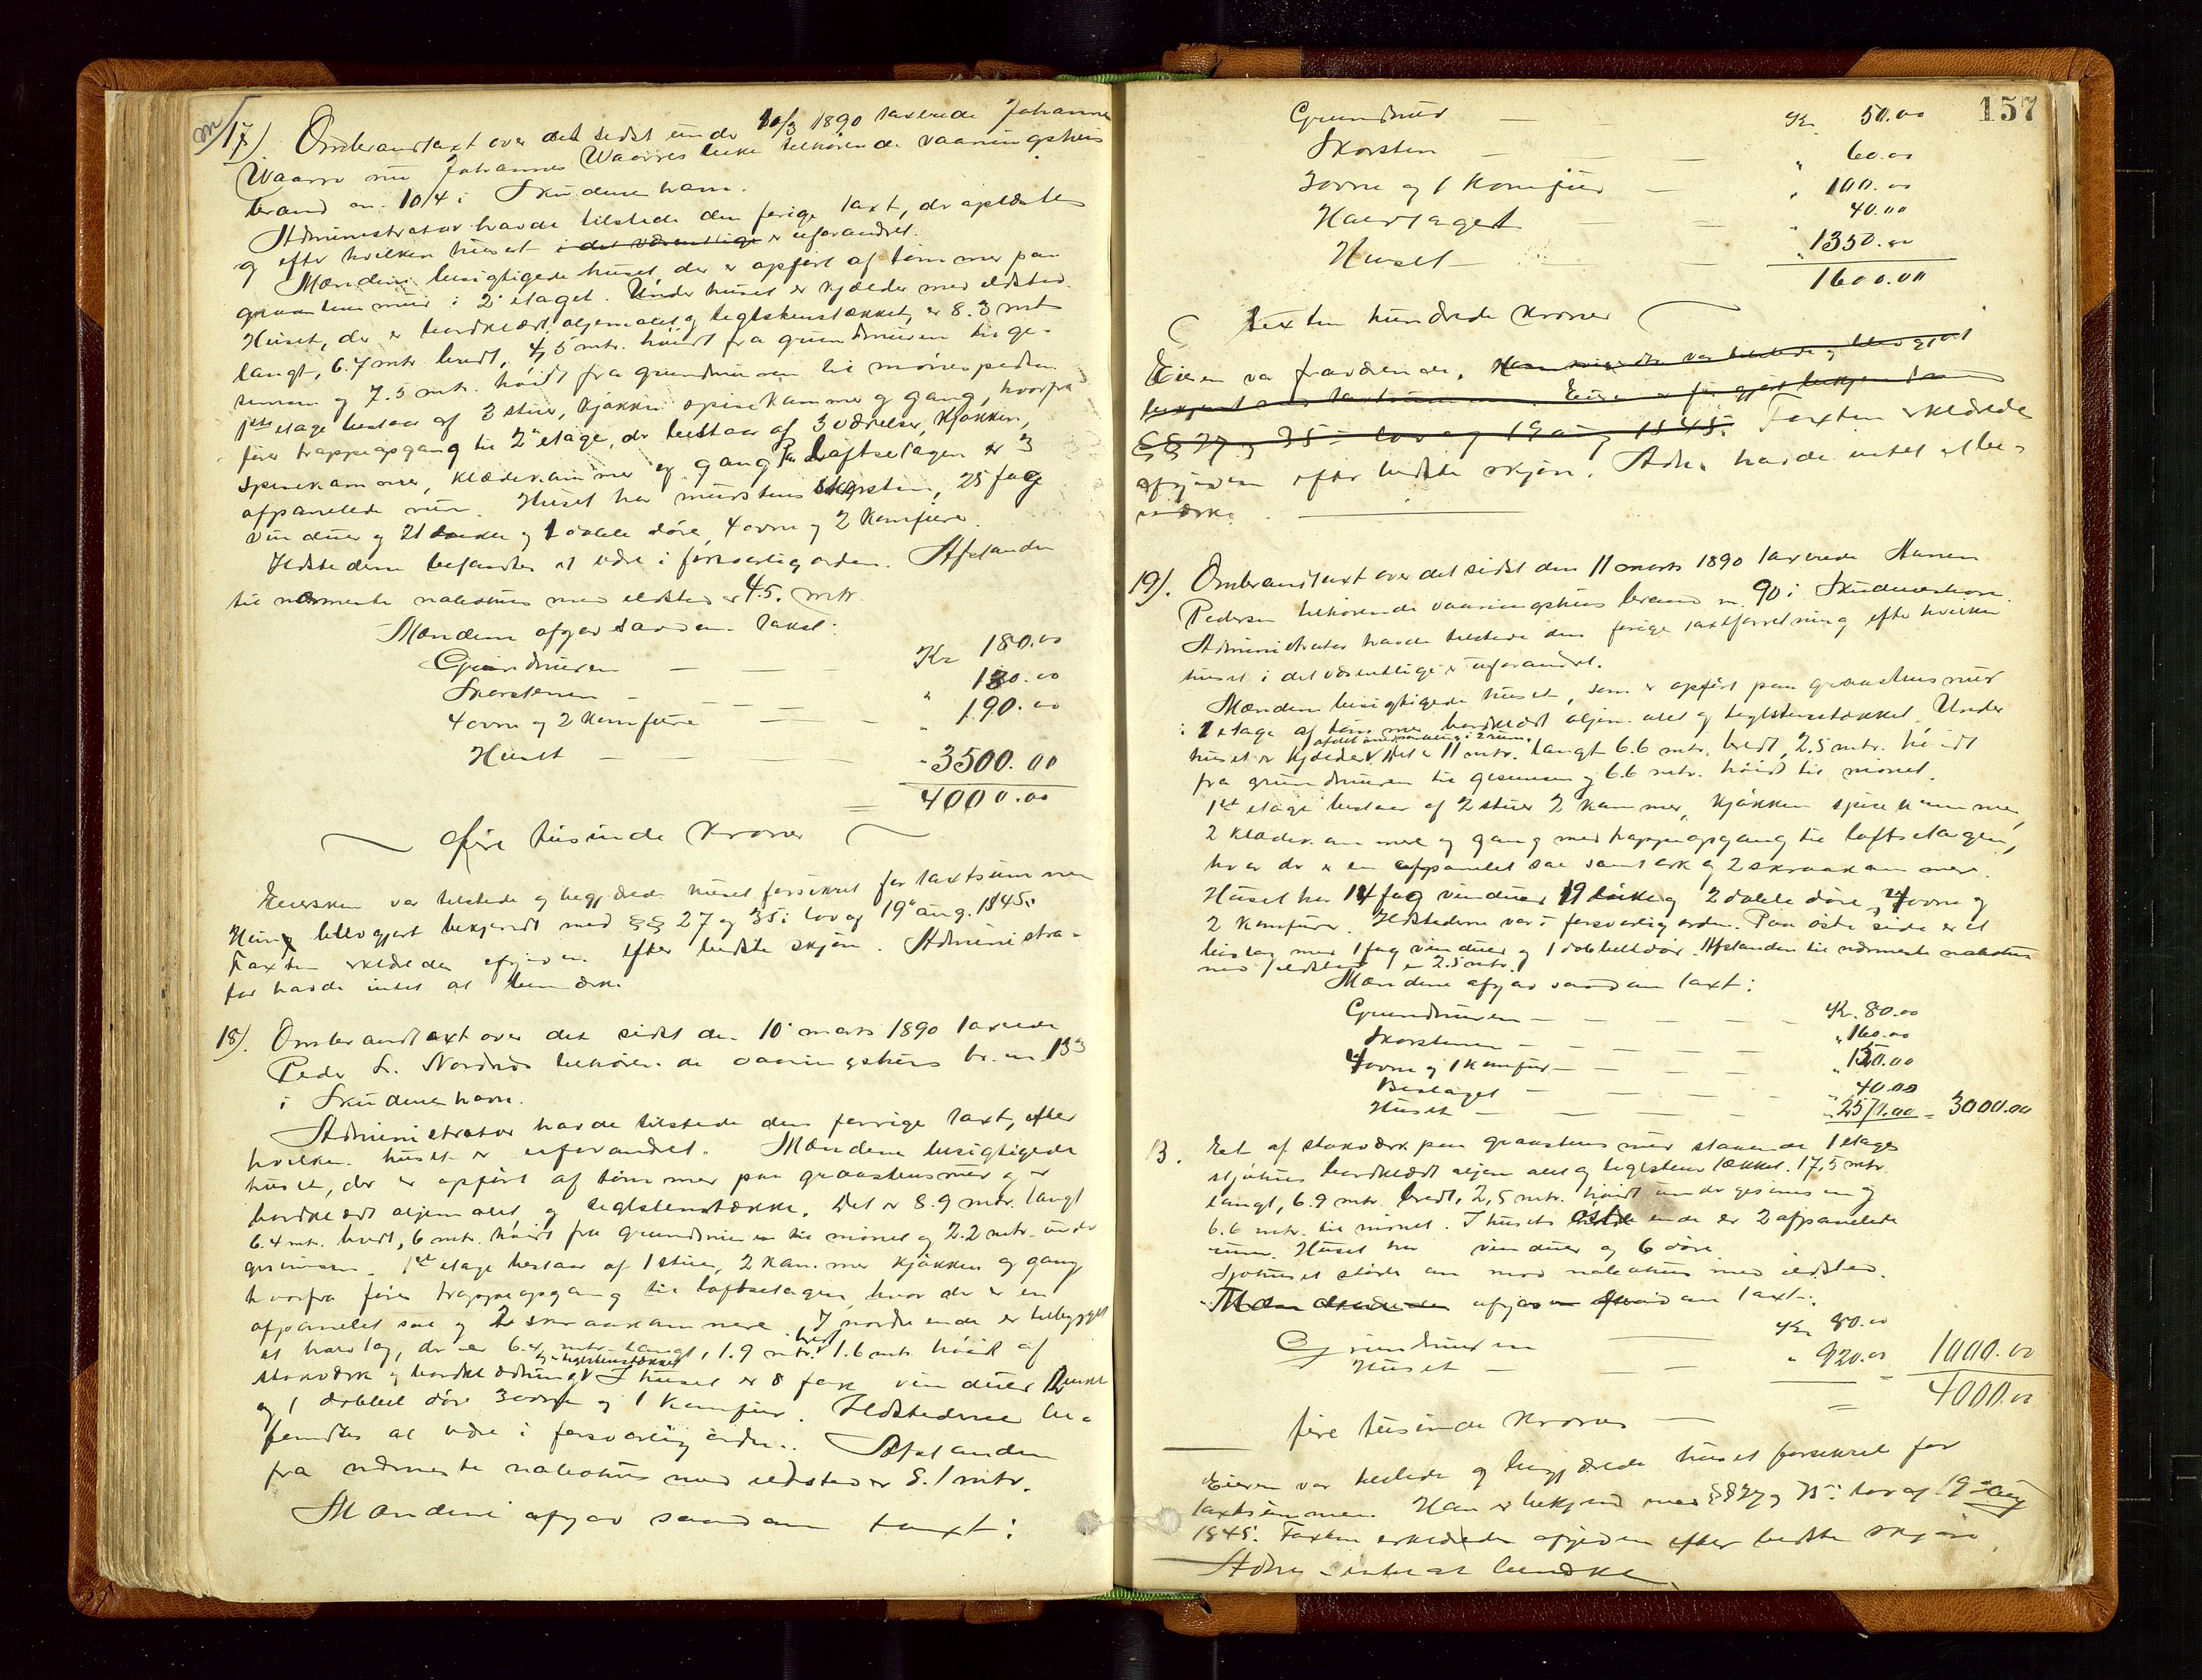 17) Ombrandtaxt over det sidst under 10/3 1890 taxerede Johannes
Waarre nu Johannes Waarres enke tilhørende vaaningshus
brand no. 104 i Skudeneshavn.
Administrator havde tilstede den forige taxt, der oplæstes
og efter hvilken huset i det væsentlige er uforandret.
Mændene besigtigede huset, der er opført af tømmer paa
graastensmur i 2 etager. Under huset er kjælder med ildsted.
Huset, der er bordklædt, oljemalet og teglstenstækket, er 8.3 mtr
langt, 6.7 mtr bredt, 4,5 mtr. høidt fra grundmuren til ge-
simsen og 7.5 mtr. høidt fra grundmuren til mønespidsen
1ste etage bestaar af 3 stuer, kjøkken spisekammer og gang, hvorfra
fører trappeopgang til 2den etage, der bestaar af 3 værelser, kjøkken,
spisekammer, klædekammer og gang. Paa loftsetagen er 3
afpanelede rum. Huset har murstens skorsten, 25 fag
vinduer og 21 enkle og 1 doble døre, 4 ovne og 2 komfure.
Ildstederne befandtes at være i forsvarlig orden. Afstanden
til nærmeste nabohus med ildsted er 4.5. mtr.
Mændene afgav saadan takst:
Grundmuren — — Kr 180.00
Skorstenen — — " 130.00
4 ovne og 2 komfure — — " 190.00
Huset — — — " 3500.00
= 4000.00
fire tusinde kroner
Eiersken var tilstede og begjærede huset forsikret for taxtsummen
Hun blev gjort bekjendt med §§ 27 og 35 i lov af 19 aug. 1845.
Taxten erklæredes afgiven efter bedste skjøn. Administra-
tor havde intet at bemærke
18). Ombrandtaxt over det sidst den 10 marts 1890 taxerede
Peder L. Nordnes tilhørende vaaningshus br. no 133
i Skudeneshavn.
Administrator havde tilstede den forrige taxt, efter
hvilken huset er uforandret. Mændene besigtigede
huset, der er opført af tømmer paa graastensmur og er
bordklædt oljemalet og teglstenstækket. Det er 8.9 mtr. langt
6.4 mtr. bredt, 6 mtr. høidt fra grundmuren til mønet og 2.2 mtr. under
gesimsen. 1ste etage bestaar af 1 stue, 2 kammer kjøkken og gang
hvorfra fører trappeopgang til loftsetagen, hvor der er en
afpanelet sal og 2 skraakammere. I nordre ende er tilbygget
et halvtag, der er 6.4 mtr. langt, 1.9 mtr. bredt 1.6 mtr høidt af
stavværk og bordklædning og teglstenstækket. I huset er 8 fag vinduer 12 enkle
og 1 dobbel dør 3 ovne og 1 komfur. Ildstederne be-
fandtes at være i forsvarlig orden. Afstanden
fra nærmeste nabohus med ildsted er 8.1 mtr.
Mændene afgav saadan taxt:
157
Grundmur — — Kr. 50.00
Skorsten — — " 60.00
3 ovne og 1 komfur — " 100.00
Halvtaget — — " 40.00
Huset — — " 1350.00
1600.00
Sexten hundrede kroner
Eieren var fraværende. Hans
Taxten erklæredes
§§ 27 og 35 i lov af 19 aug 1845.
afgiven efter bedste skjøn. Adm. havde intet at be-
mærke.
19). Ombrandtaxt over det sidst den 11 marts 1890 taxerede Hansen
Pedersen tilhørende vaaningshus brand no. 90 i Skudeneshavn.
Administrator havde tilstede den forige taxtforretning efter hvilken
huset i det væsentlige er uforandret.
Mændene besigtigede huset, som er opført paa graastensmur
i 1 etage af tømmer bordklædt oljemalet og teglstenstækket. Under
huset er kjælder. Det er 11 mtr. langt 6.6 mtr. bredt, 2.5 mtr. høidt
fra grundmuren til gesimsen og 6.6 mtr. høidt til mønet.
1ste etage bestaar af 2 stuer 2 kammer, kjøkken spisekammer,
2 klædekammere og gang med trappeopgang til loftsetagen,
hvor der er en afpanelet sal samt ark og 2 skraakammere.
Huset har 14 fag vinduer 19 enkle og 2 doble døre, 4 ovne og
2 komfure. Ildstederne var i forsvarlig orden. Paa østre side er et
bislag med 1 fag vinduer og 1 dobbelt dør. Afstanden til nærmeste nabohus
med ildsted er 2.5 mtr.
Mændene afgav saadan taxt:
Grundmuren — — — Kr. 80.00
Skorstenen — — — " 160.00
4 ovne og 1 komfur — — " 150.00
Bislaget — — " 40.00
Huset — — — " 2570.00 = 3000.00
B. Et af stavværk paa graastens mur staaende 1 etages
sjøhus bordklædt oljemalet og teglstenstækket. 17,5 mtr.
langt, 6.9 mtr. bredt, 2,5 mtr. høidt under gesimsen og
6.6 mtr. til mønet. I husets østre ende er 2 afpanelede
rum. Huset har vinduer og 6 døre
Sjøhuset støder an mod nabohus med ildsted.
Mændene afgav saadan taxt:
Grundmuren — Kr 80.00
Huset — — " 920.00 = 1000.00
= 4000.00
fire tusinde kroner —
Eieren var tilstede og begjærede huset forsikret for
taxtsummen. Han er bekjend med §§ 27 og 35 i lov af 19 aug
1845. Taxten erklæredes afgiven efter bedste skjøn
Adm. intet at bemærke